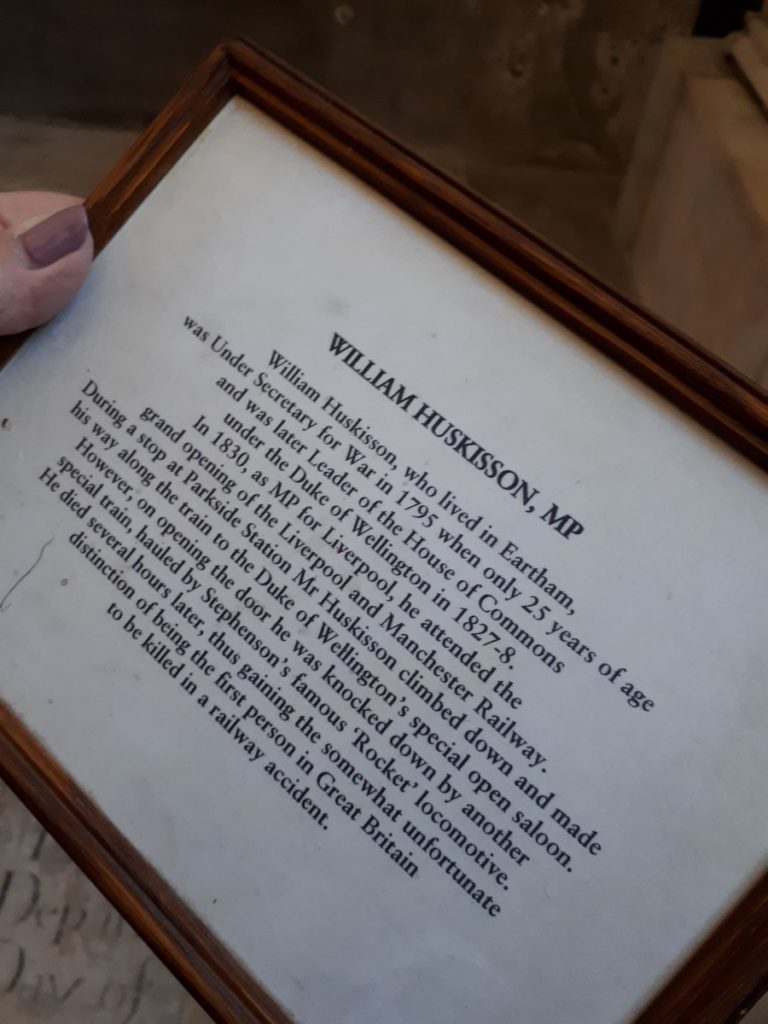 WILLIAM HUSKISSON, MP
William Huskisson, who lived in Eartham,
was Under Secretary for War in 1795 when only 25 years of age
and was later Leader of the House of Commons
under the Duke of Wellington in 1827-8.
In 1830, as MP for Liverpool, he attended the
grand opening of the Liverpool and Manchester Railway.
During a stop at Parkside Station Mr Huskisson climbed down and made
his way along the train to the Duke of Wellington's special open saloon.
However, on opening the door he was knocked down by another
special train, hauled by Stephenson's famous 'Rocket' locomotive.
He died several hours later, thus gaining the somewhat unfortunate
distinction of being the first person in Great Britain
to be killed in a railway accident.
Day of